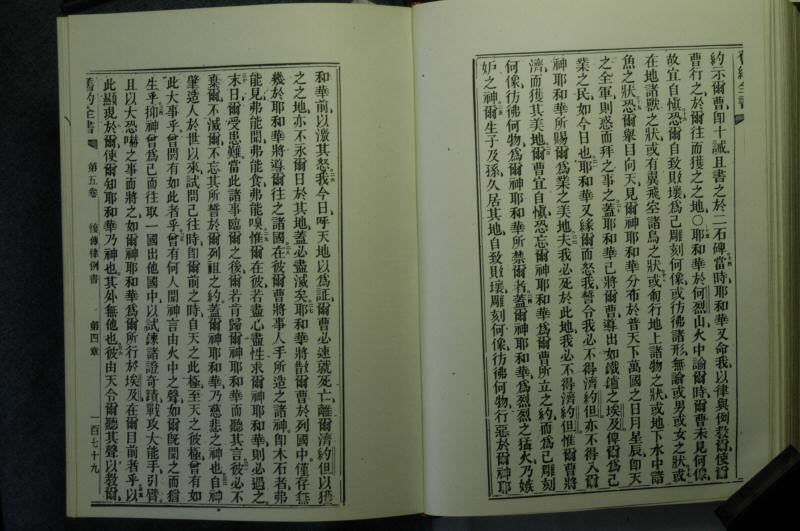 舊約全書
約示爾曹卽十誡且書之於二石碑當時耶和華又命我以律與例敎爾使爾
曹行之於爾往而獲之之地○耶和華於何烈山火中諭爾時爾曹未見何像
故宜自愼恐爾自致敗壞爲己雕刻何像或彷彿諸形無論或男或女之狀或
在地諸獸之狀或有翼飛空諸鳥之狀或匍行地上諸物之狀或地下水中諸
魚之狀恐爾舉目向天見爾神耶和華分布於普天下萬國之日月星辰卽天
之全軍則惑而拜之事之蓋耶和華已將爾曹導出如鐵爐之埃及俾爾爲己
業之民如今日也耶和華又緣爾而怒我誓令我必不得濟約但亦不得入爾
神耶和華所賜爾爲業之美地夫我必死於此地我必不得濟約但惟爾曹將
濟而獲其美地爾曹宜自愼恐忘爾神耶和華爲爾曹所立之約而爲己雕刻
何像彷彿何物爲爾神耶和華所禁爾者蓋爾神耶和華爲烈烈之猛火乃嫉
妒之神爾生子及孫久居其地自致敗壞雕刻何像彷彿何物行惡於爾神耶
和華前以激其怒我今日呼天地以爲証爾曹必速就死亡離爾濟約但以獲
之之地亦不永爾日於其地蓋必盡滅矣耶和華將散爾曹於列國中僅存無
幾於耶和華將導爾往之諸國在彼爾曹將事人手所造之諸神卽木石者弗
能見弗能聞弗能食弗能嗅惟爾在彼若盡心盡性求爾神耶和華則必遇之
末日爾受患難當此諸事臨爾之後爾若肯歸爾神耶和華而聽其言彼必不
棄爾不滅爾不忘其所誓於爾列祖之約蓋爾神耶和華乃慈悲之神也自神
肇造人於世以來試問已往時卽爾前之時自天之此極至天之彼極曾有如
此大事乎曾聞有如此者乎曾有何人聞神言由火中之聲如爾旣聞之而猶
生乎抑神曾爲己而往取一國出他國中以試煉諸證奇蹟戰攻大能手引臂
且以大恐嚇之事而將之如爾神耶和華爲爾所行於埃及在爾目前者乎以
此顯現於爾使爾知耶和華乃神也其外無他也彼由天令爾聽其聲以敎爾
舊約全書 第五卷 復傳律例書 第四章 一百七十九